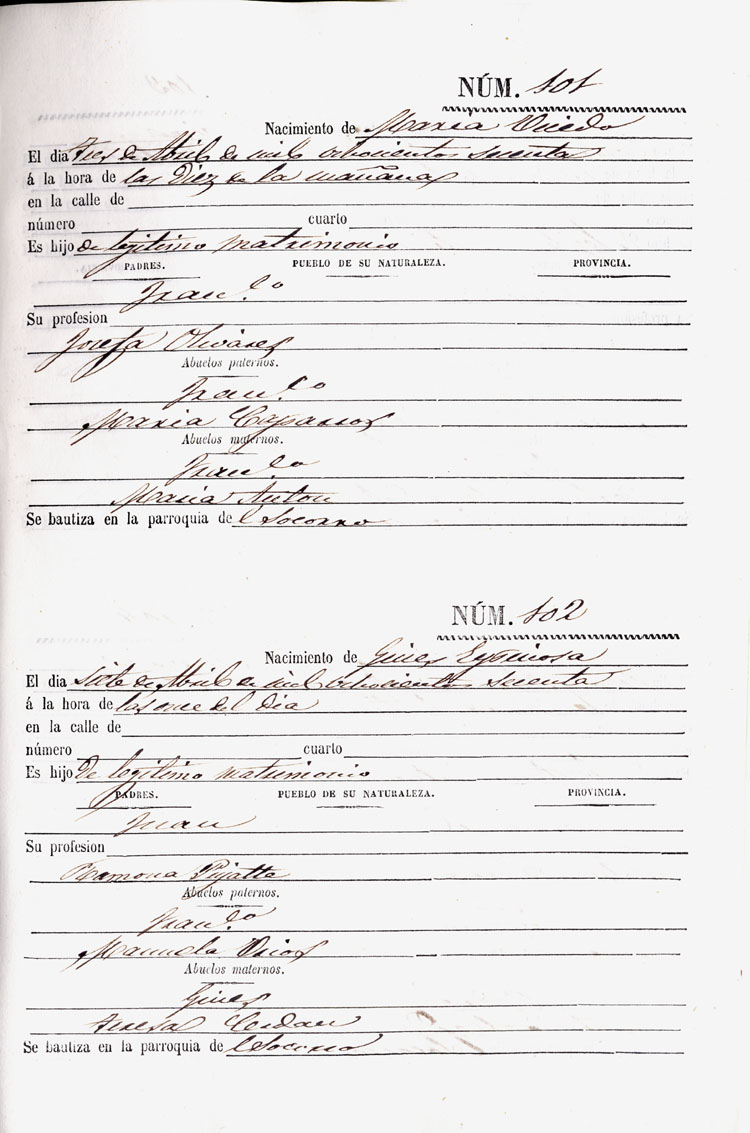 NÚM. 101
Nacimiento de Maria Oviedo
El dia Tres de Abril de mil ochocientos sesenta
á la hora de las Diez de la mañana
en la calle de
número cuarto
Es hijo de legitimo matrimonio
PADRES. PUEBLO DE SU NATURALEZA. PROVINCIA.
Fran.co
Su profesion
Josefa Olivares
Abuelos paternos.
Fran.co
Maria Caparros
Abuelos maternos.
Fran.co
Maria Anton
Se bautiza en la parroquia de l Socorro
NÚM. 102
Nacimiento de Gines Espinosa
El dia Siete de Abril de mil ochocientos sesenta
á la hora de las once del dia
en la calle de
número cuarto
Es hijo De legitimo matrimonio
PADRES. PUEBLO DE SU NATURALEZA. PROVINCIA.
Juan
Su profesion
Ramona
Abuelos paternos.
Fran.co
Manuela
Abuelos maternos.
Gines
Teresa Cerdan
Se bautiza en la parroquia de l Socorro